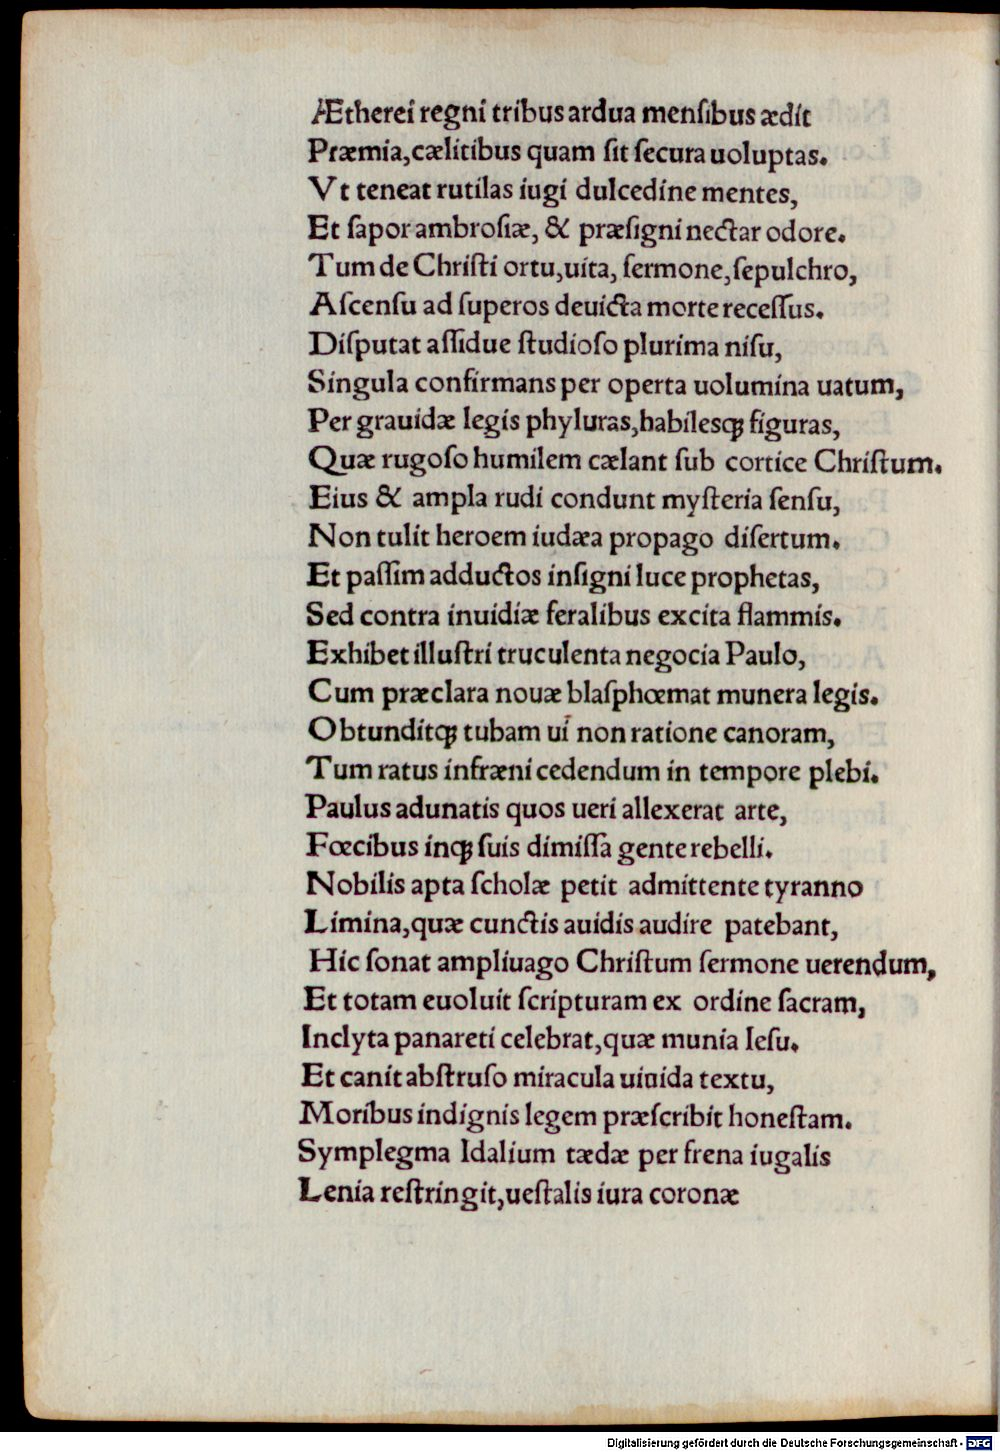 Ætherei regni tribus ardua menſibus ædit
Præmia,cælitibus quam ſit ſecura uoluptas.
Vt teneat rutilas iugi dulcedine mentes,
Et ſapor ambroſiæ, & præſigni nectar odore.
Tum de Chriſti ortu,uita, ſermone,ſepulchro,
Aſcenſu ad ſuperos deuicta morte receſſus.
Diſputat aſſidue ſtudioſo plurima niſu,
Singula confirmans per operta uolumina uatum,
Per grauidæ legis phyluras,habilesqꝫ figuras,
Quæ rugoſo humilem cælant ſub cortice Chriſtum.
Eius & ampla rudi condunt myſteria ſenſu,
Non tulit heroem iudæa propago diſertum.
Et paſſim adductos inſigni luce prophetas,
Sed contra inuidiæ feralibus excita flammis.
Exhibet illuſtri truculenta negocia Paulo,
Cum præclara nouæ blaſphœmat munera legis.
Obtunditqꝫ tubam ui non ratione canoram,
Tum ratus infræni cedendum in tempore plebi.
Paulus adunatis quos ueri allexerat arte,
Fœcibus inqꝫ ſuis dimiſſa gente rebelli.
Nobilis apta ſcholæ petit admittente tyranno
Limina,quæ cunctis auidis audire patebant,
Hic ſonat ampliuago Chriſtum ſermone uerendum,
Et totam euoluit ſcripturam ex ordine ſacram,
Inclyta panareti celebrat,quæ munia Ieſu.
Et canit abſtruſo miracula uiuida textu,
Moribus indignis legem præſcribit honeſtam.
Symplegma Idalium tædæ per frena iugalis
Lenia reſtringit,ueſtalis iura coronæ
Digitalisierung gefördert durch die Deutsche Forschungsgemeinschaft - DFG